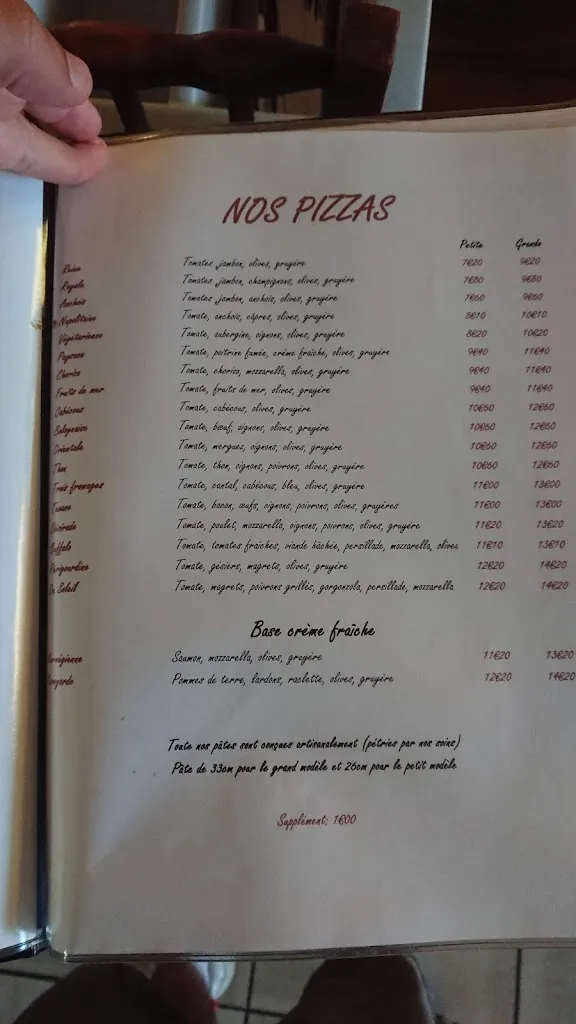 NOS PIZZAS
Petite Grande
Reine Tomates ,jambon, olives, gruyère 7€20 9€20
Royale Tomates ,jambon, champignons, olives, gruyère 7€80 9€80
Anchois Tomates ,jambon, anchois, olives, gruyère 7€60 9€60
Napolitaine Tomate, anchois, câpres, olives, gruyère 8€10 10€10
Végétarienne Tomate, aubergine, oignons, olives, gruyère 8€20 10€20
Paysane Tomate, poitrine fumée, crème fraîche, olives, gruyère 9€40 11€40
Chorizo Tomate, chorizo, mozzarella, olives, gruyère 9€40 11€40
Fruits de mer Tomate, fruits de mer, olives, gruyère 9€40 11€40
Cabécous Tomate, cabécous, olives, gruyère 10€60 12€60
Bolognaise Tomate, bœuf, oignons, olives, gruyère 10€60 12€60
Orientale Tomate, merguez, oignons, olives, gruyère 10€60 12€60
Thon Tomate, thon, oignons, poivrons, olives, gruyère 10€60 12€60
Trois fromages Tomate, cantal, cabécous, bleu, olives, gruyère 11€00 13€00
Texane Tomate, bacon, œufs, oignons, poivrons, olives, gruyères 11€00 13€00
Désirade Tomate, poulet, mozzarella, oignons, poivrons, olives, gruyère 11€20 13€20
Buffalo Tomate, tomates fraiches, viande hâchée, persillade, mozzarella, olives 11€10 13€10
Périgourdine Tomate, gésiers, magrets, olives, gruyère 12€20 14€20
Du Soleil Tomate, magrets, poivrons grillés, gorgonzola, persillade, mozzarella 12€20 14€20
Base crème fraîche
Norvégienne Saumon, mozzarella, olives, gruyère 11€20 13€20
Pommes de terre, lardons, raclette, olives, gruyère 12€20 14€20
Toute nos pâtes sont conçues artisanalement (pétries par nos soins)
Pâte de 33cm pour le grand modèle et 26cm pour le petit modèle
Supplément: 1€00